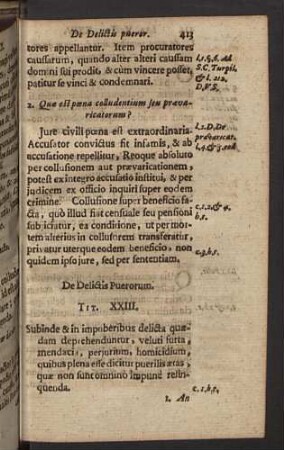 De Delictis pueror. 413
tores appellantur. Item procuratores
caussarum, quando alter alteri caussam
domini sui prodit, & cùm vincere posset,
patitur se vinci & condemnari.
l.1.§.6. Ad
S.C. Turpil.
& l. 212.
D.V.S.
2. Quæ est pœna colludentium seu præva-
ricatorum?
Jure civili pœna est extraordinaria.
Accusator convictus fit infamis, & ab
accusatione repellitur, Reoque absoluto
per collusionem aut prævaricationem,
potest ex integro accusatio institui, & per
judicem ex officio inquiri super eodem
crimine. Collusione super beneficio fa-
cta, quò illud fiat censuale seu pensioni
subjiciatur, ea condicione, ut per mor-
tem alterius in collusorem transferatur,
privatur uterque eodem beneficio, non
quidem ipso jure, sed per sententiam.
l.2.D.De
prævaricat.
l.4.§
c.1.2.& 4.
h.t.
c.3.h.t.
De Delictis Puerorum.
TIT. XXIII.
Subinde & in impuberibus delicta quæ-
dam deprehenduntur, veluti furta,
mendacia, perjurium, homicidium,
quibus plena esse dicitur puerilis ætas,
quæ non sunt omnino impunè relin-
quenda.
c.1.h.t.
1. An